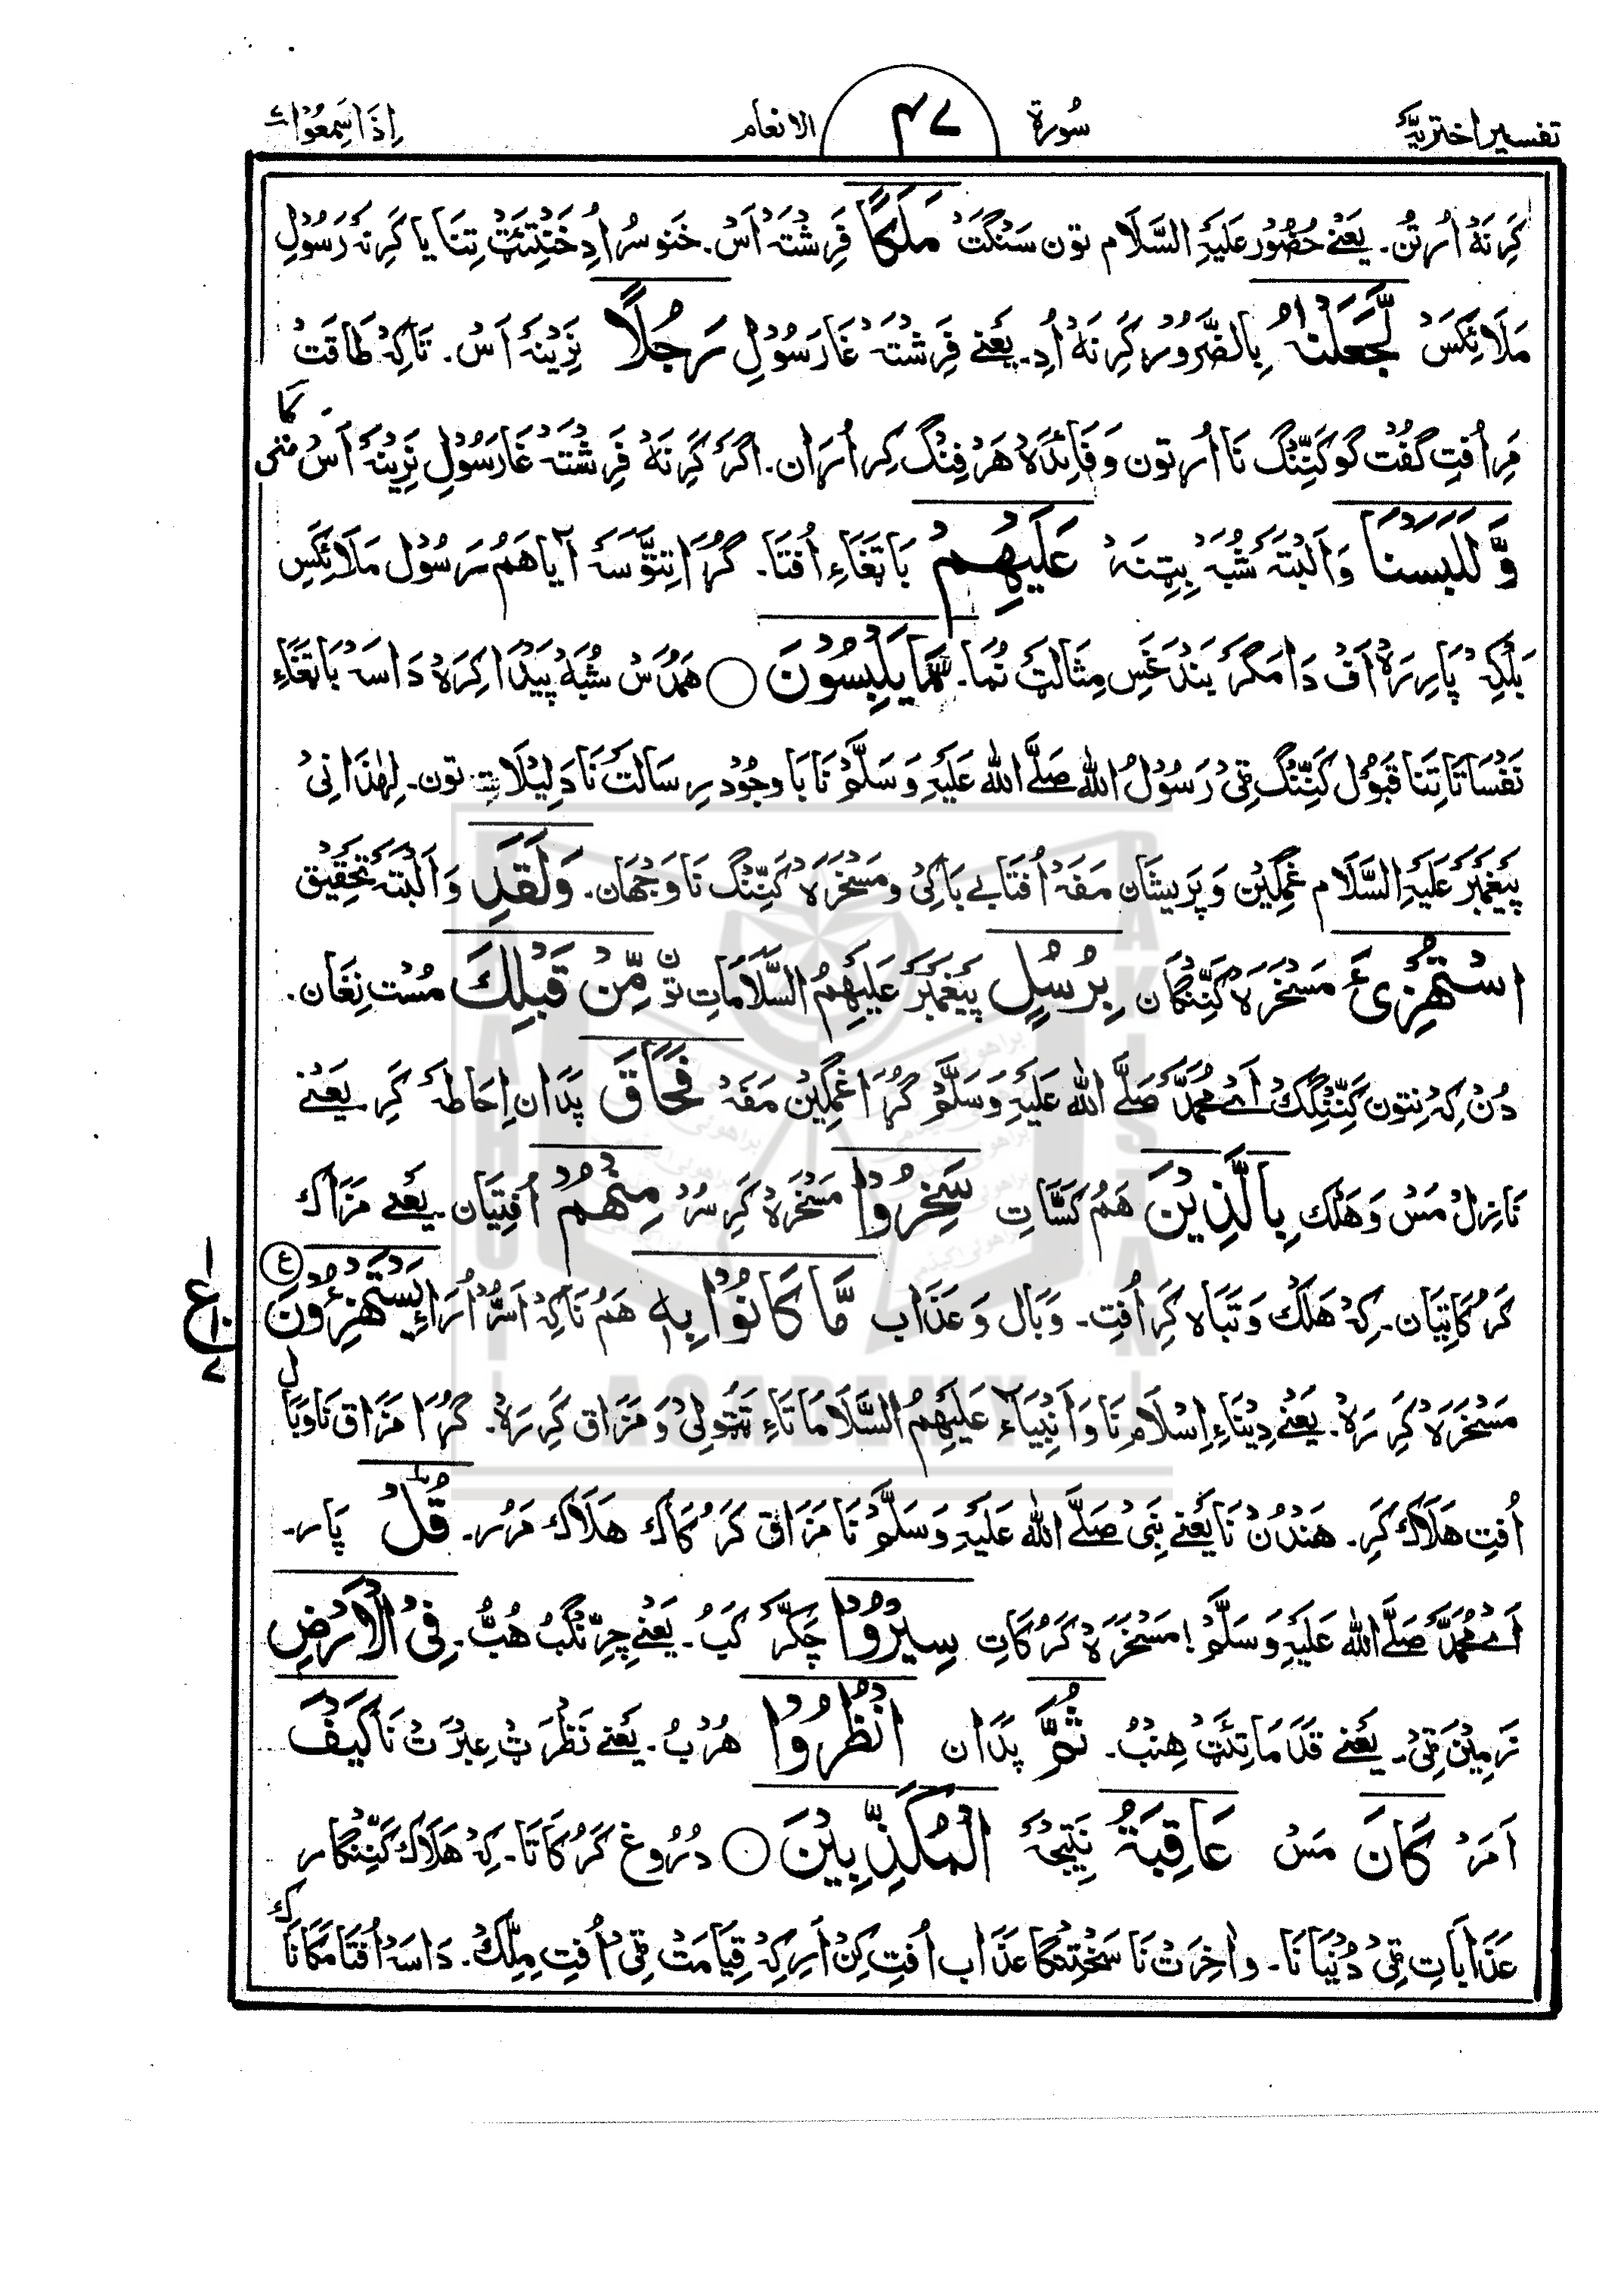 تفسیر اختریہ سُورۃ ۴۷ الانعام اِذَا سَمِعُوا ۷
کَرِنَہ اُرتُن۔ یَعنے حُضُور عَلَیہِ السَّلَام تون سَنگَت مَلَكًا فَرِشتَہ اَس۔ خَنوسُر اُدِ خَنتِیَت تِنَا یا کَرِنَہ رَسُولِ
مَلَائِکَس لَّجَعَلْنٰهُ بِالضَّرُور کَرِنَہ اُدِ۔ یَعنے فَرِشتَہ غَا رَسُولِ رَجُلًا نَرِینَہ اَس۔ تَاکِہ طَاقَت
مَرِ اُفتِ گُفت گو کَنِّنگ نَا اُرتون وَ فَائِدَہ ہَرفِنگ کِر اُرَان۔ اَگر کَرِنَہ فَرِشتَہ غَا رَسُولِ نَرِینَہ اَس
وَّلَلَبَسْنَا وَالبَتَہ شُبَہ بِتِنَہ عَلَيْهِمْ بَاتغَاءِ اُفتَا۔ گُڑَا اِتوَّسَہ آیا ہَم رَسُول مَلَائِکَس
بَلکِہ پَارِرَہ اَف دَا مَگر بَندَغَس مِثَالَٹ نُمَا۔ مَّا يَلْبِسُوْنَ ○ ہَمدُس شُبَہ پَیدَا کِرَہ دَاسَہ بَاتغَاءِ
نَفسَاتَا تِنَا قَبُول کَنِّنگ ٹی رَسُولُ اللہ صَلَّے اللہ عَلَیہِ وَسَلَّم نَا بَاوجُود رِسَالَت نَا دَلِیلَاتِ تون۔ لِہٰذَا نِی
پَیغَمبَر عَلَیہِ السَّلَام غَمگِین وَ پَرِیشَان مَفَہ اُفتَا بے بَاکی و مَسخَرَہ کَنِّنگ نَا وَجہَان۔ وَلَقَدِ وَالبَتَہ تَحقِیق
اسْتُهْزِئَ مَسخَرَہ کَنِّنگَان بِرُسُلٍ پَیغَمبَر عَلَیہِمُ السَّلَامَاتِ تون مِّنْ قَبْلِكَ مُست نِغَان۔
دُن کِہ نتون کَنِّنگِک اَے مُحَمَّد صَلَّے اللہ عَلَیہِ وَسَلَّم گُڑَا غَمگِین مَفَہ فَحَاقَ پَدَان اِحَاطَہ کَرِ یَعنے
نَازِل مَس وَ ہَلک بِالَّذِيْنَ ہَم کَسَاتِ سَخِرُوْا مَسخَرَہ کَرِ سُر مِنْهُمْ اُفتِیَان۔ یَعنے مَزَاک
کَرُکَاتِیَان۔ کِہ ہَلَک وَ تَبَاہ کَرِ اُفتِ۔ وَبَال وَ عَذَاب مَّا كَانُوْا بِهٖ ہَم نَاکِہ اَسُّر اُرَاءِ يَسْتَهْزِءُوْنَ ع
مَسخَرَہ کَرِرَہ۔ یَعنے دِینَاءِ اِسلَام نَا وَ اَنبِیَاء عَلَیہِمُ السَّلَامَاتَاءِ تَتَولی وَ مَزَاق کَرِرَہ۔ گُڑَا مَزَاق نَا وَبَال
اُفتِ ہَلَاک کَرِ۔ ہَندُن نَا یَعنے نَبِی صَلَّے اللہ عَلَیہِ وَسَلَّم نَا مَزَاق کَرُکَاک ہَلَاک مَرُر۔ قُلْ پَار۔
اَے مُحَمَّد صَلَّے اللہ عَلَیہِ وَسَلَّم! مَسخَرَہ کَرُکَاتِ سِيْرُوْا چَکَّر کَبُ۔ یَعنے چَرِّنگبُ ہُبُّ۔ فِی الْاَرْضِ
زَمِین ٹی۔ یَعنے قَدَمَاتِئَٹ ہِنبُ۔ ثُمَّ پَدَان انْظُرُوْا ہُربُ۔ یَعنے نَظرَٹ عِبرَت نَا كَيْفَ
اَمَر كَانَ مَس عَاقِبَةُ نَتِیجَہ الْمُكَذِّبِيْنَ ○ دُرُوغ کَرُکَاتَا۔ کِہ ہَلَاک کَنِّنگار
عَذَابَاتِ ٹی دُنیَا نَا۔ وَاٰخِرَت نَا سَختِنگا عَذَاب اُفتِ کِن اَرِ کِہ قِیَامَت ٹی اُفتِ مِلِّک۔ دَاسَہ اُفتَا مَکَانَاک